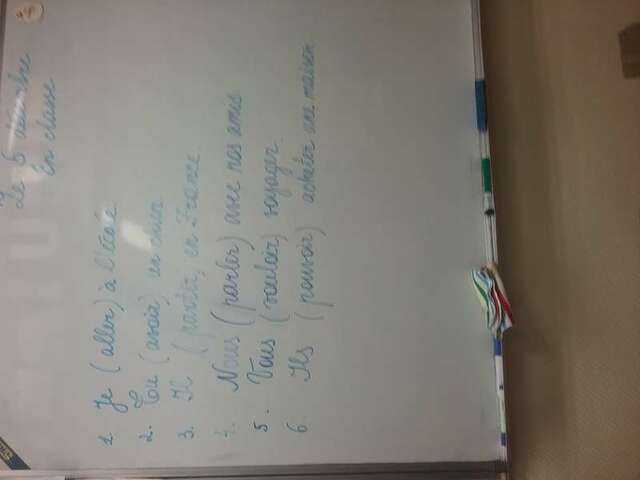 Le 5 décembre
En classe
1. Je (aller) à l'école.
2. Tu (avoir) un chien
3. Il (partir) en France
4. Nous (parler) avec nos amis
5. Vous (vouloir) voyager.
6. Ils (pouvoir) acheter une maison